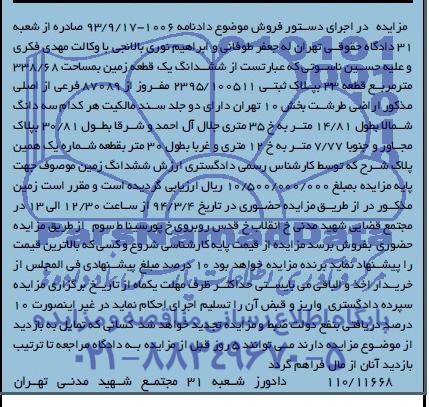 مزایده در اجرای دستور فروش موضوع دادنامه ۱۰۰۶-۹۳/۹/۱۷ صادره از شعبه
۳۱ دادگاه حقوقی تهران له جعفر طوفانی و ابراهیم نوری بالانجی با وکالت مهدی فکری
و علیه حسین ناسوتی که عبارتست از ششدانگ یک قطعه زمین بمساحت ۳۳۸/۶۸
مترمربع قطعه ۲۳ بپلاک ثبتی ۲۳۹۵/۱۰۰۵۱۱ مفروز از ۸۷۰۸۹ فرعی از اصلی
مذکور اراضی طرشت بخش ۱۰ تهران دارای دو جلد سند مالکیت هر کدام سه دانگ
شمالا بطول ۱۴/۸۱ متر به خ ۳۵ متری جلال آل احمد و شرقا بطول ۳۰/۸۱ بپلاک
مجاور و جنوبا ۷/۷۷ متر به خ ۱۲ متری و غربا بطول ۳۰ متر بقطعه شماره یک همین
پلاک شرح که توسط کارشناس رسمی دادگستری ارزش ششدانگ زمین موصوف جهت
پایه مزایده بمبلغ ۱۰/۵۰۰/۰۰۰/۰۰۰ ریال ارزیابی گردیده است و مقرر است زمین
مذکور در از طریق مزایده حضوری در تاریخ ۹۴/۳/۴ از ساعت ۱۲/۳۰ الی ۱۳ در
مجتمع قضایی شهید مدنی خ انقلاب خ قدس روبروی خ پورسینا ط سوم از طریق مزایده
حضوری بفروش برسد مزایده از قیمت پایه کارشناسی شروع و کسی که بالاترین قیمت
را پیشنهاد نماید برنده مزایده خواهد بود ۱۰ درصد مبلغ پیشنهادی فی المجلس از
خریدار اخذ و الباقی می بایستی حداکثر ظرف مهلت یکماه از تاریخ برگزاری مزایده
سپرده دادگستری واریز و قبض آن را تسلیم اجرای احکام نماید در غیر اینصورت ۱۰
درصد دریافتی بنفع دولت ضبط و مزایده تجدید خواهد شد کسانی که تمایل به بازدید
از موضوع مزایده دارند می توانند ۵ روز قبل از مزایده به دادگاه مراجعه تا ترتیب
بازدید آنان از مال فراهم گردد
۱۱۰/۱۱۶۶۸ دادورز شعبه ۳۱ مجتمع شهید مدنی تهران
پایگاه اطلاع رسانی مناقصه و مزایده
۰۲۱-۸۸۳۴۹۶۷۰-۵